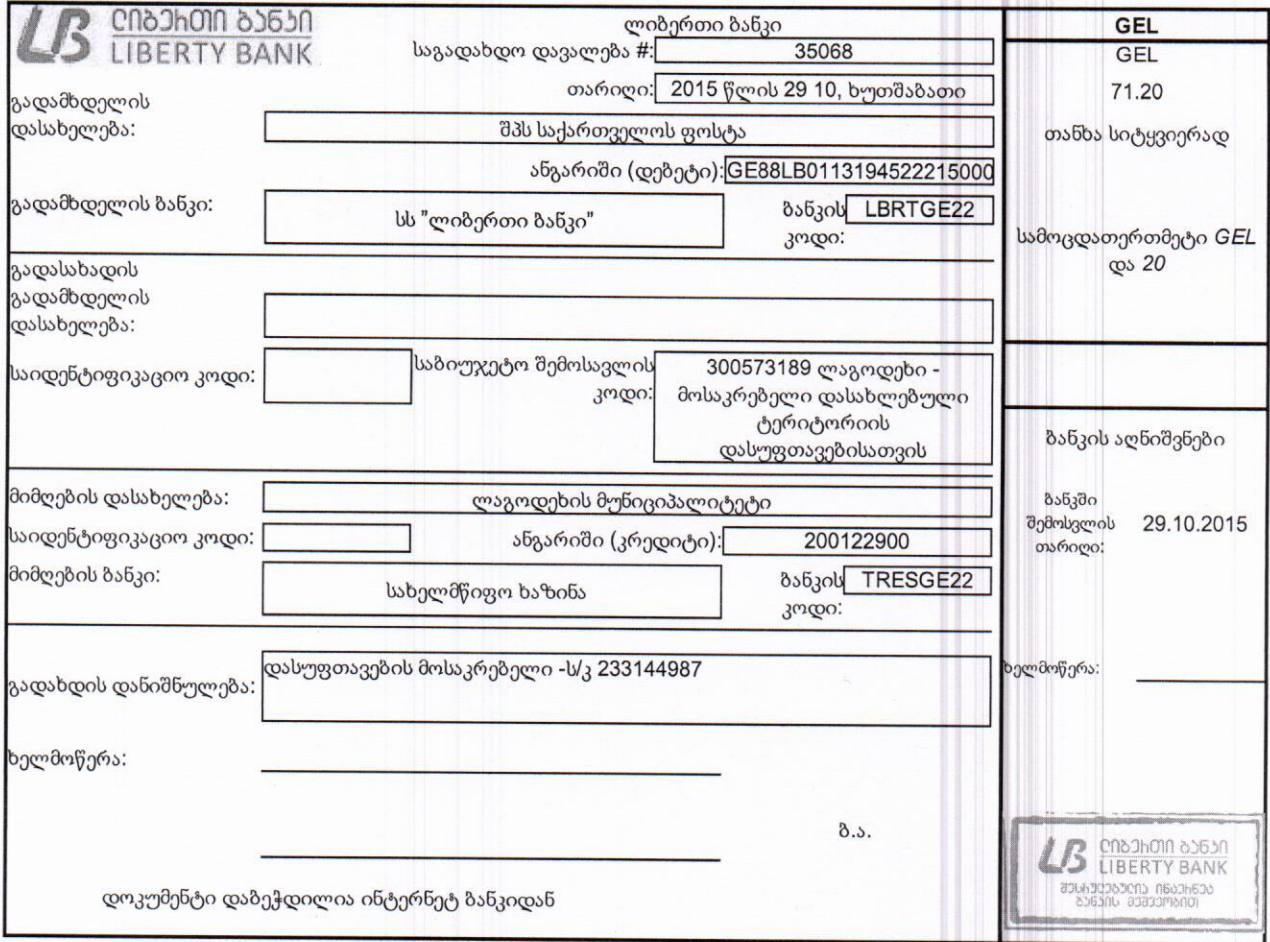 ლიბერთი ბანკი
LIBERTY BANK
ლიბერთი ბანკი
საგადახდო დავალება #: 35068
თარიღი: 2015 წლის 29 10, ხუთშაბათი
გადამხდელის
დასახელება: შპს საქართველოს ფოსტა
ანგარიში (დებეტი): GE88LB0113194522215000
გადამხდელის ბანკი: სს "ლიბერთი ბანკი" ბანკის LBRTGE22
კოდი:
გადასახადის
გადამხდელის
დასახელება:
საიდენტიფიკაციო კოდი:
საბიუჯეტო შემოსავლის
კოდი:
300573189 ლაგოდეხი -
მოსაკრებელი დასახლებული
ტერიტორიის
დასუფთავებისათვის
მიმღების დასახელება: ლაგოდეხის მუნიციპალიტეტი
საიდენტიფიკაციო კოდი: ანგარიში (კრედიტი): 200122900
მიმღების ბანკი: სახელმწიფო ხაზინა ბანკის TRESGE22
კოდი:
გადახდის დანიშნულება: დასუფთავების მოსაკრებელი -ს/კ 233144987
ხელმოწერა:
ბ.ა.
დოკუმენტი დაბეჭდილია ინტერნეტ ბანკიდან
GEL
GEL
71.20
თანხა სიტყვიერად
სამოცდათერთმეტი GEL
და 20
ბანკის აღნიშვნები
ბანკში
შემოსვლის 29.10.2015
თარიღი:
ხელმოწერა:
ლიბერთი ბანკი
LIBERTY BANK
შესრულებულია ინტერნეტ
ბანკის მეშვეობით